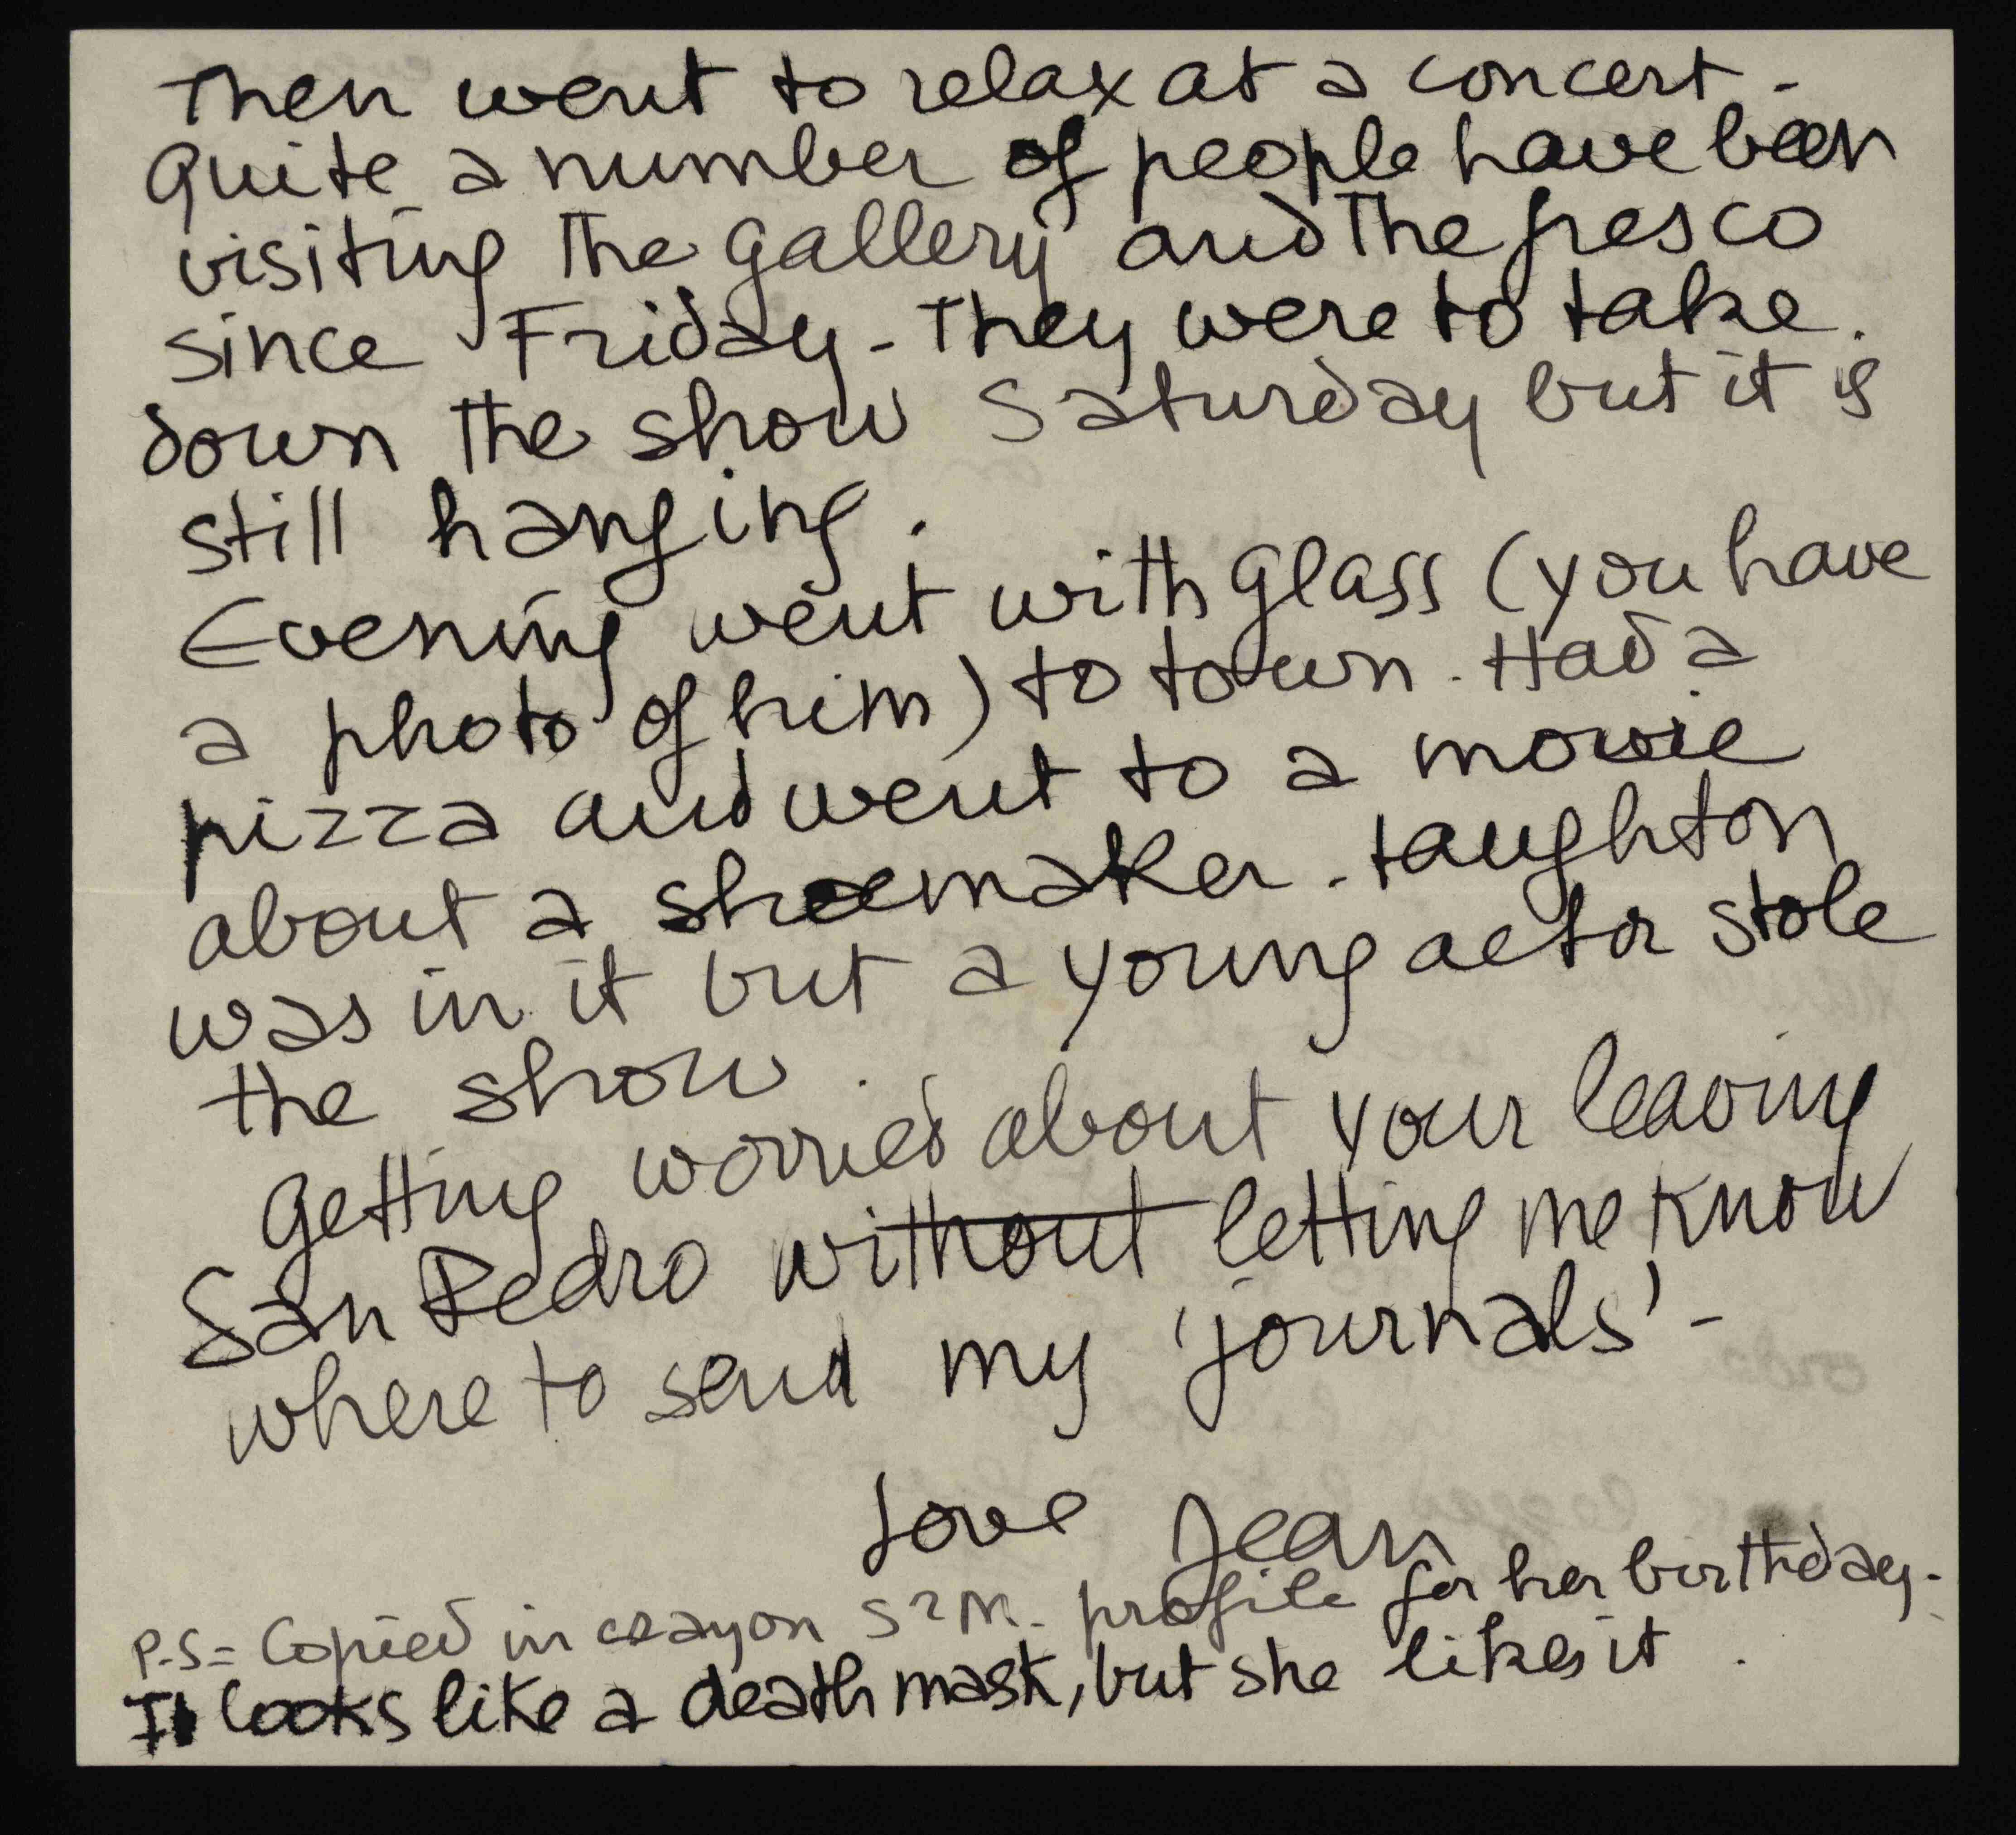 Then went to relax at a concert -
Quite a number of people have been
visiting the gallery and the fresco
since Friday - They were to take
down the show Saturday but it is
still hanging.
Evening went with Glass (you have
a photo of him) to town. Had a
pizza and went to a movie
about a shoemaker - Laughton
was in it but a young actor stole
the show.
Getting worried about your leaving
San Pedro without letting me know
where to send my 'journals' -
Love Jean
P.S = Copied in crayon profile for her birthday -
It looks like a death mask, but she likes it.